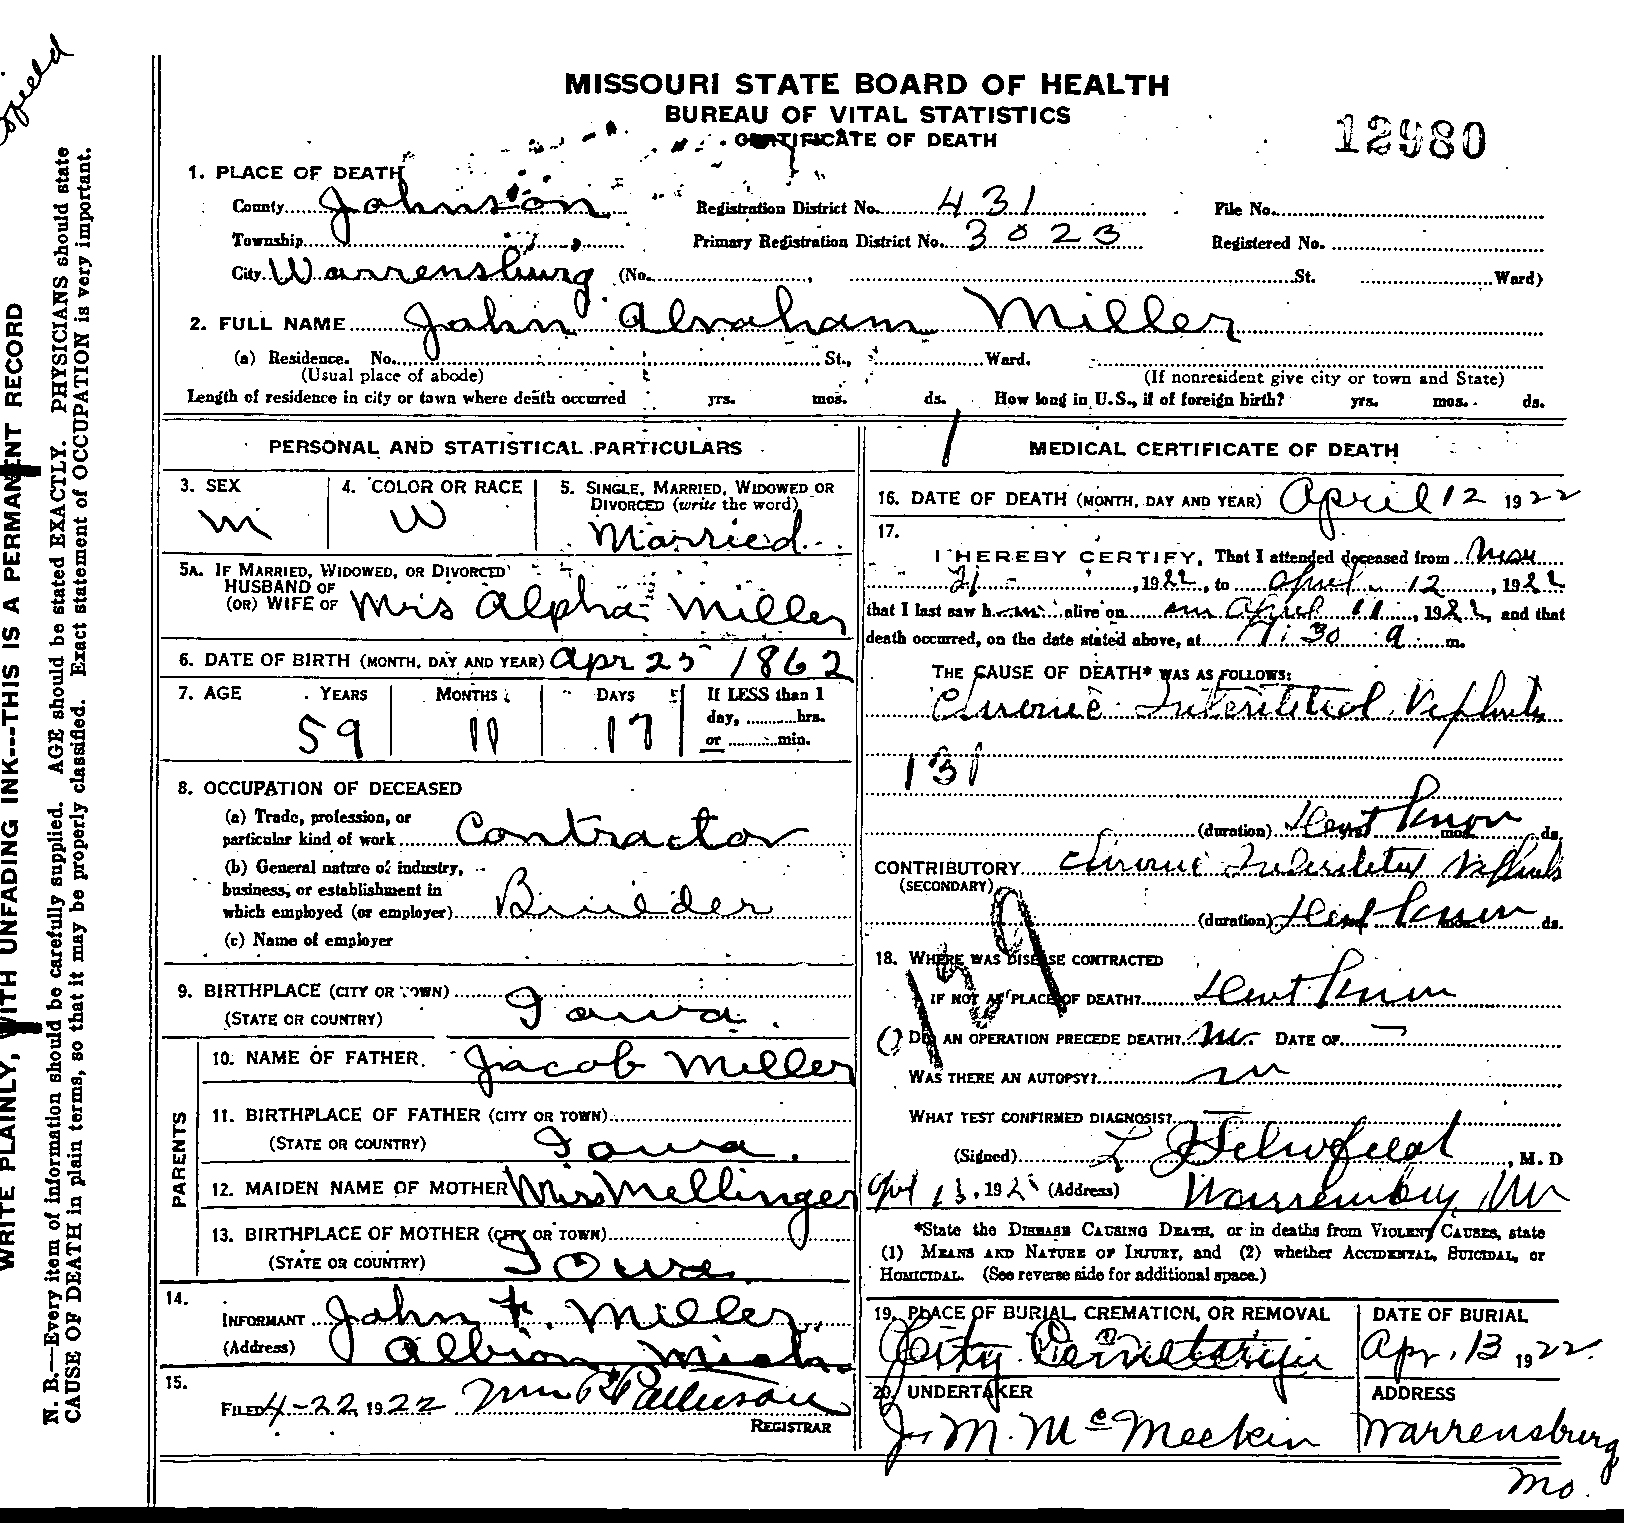 MISSOURI STATE BOARD OF HEALTH
BUREAU OF VITAL STATISTICS
CERTIFICATE OF DEATH
12980
1. PLACE OF DEATH
County Johnston Registration District No. 431 File No.
Township Primary Registration District No. 3023 Registered No.
City Warrensburg (No. , St. Ward)
2. FULL NAME John Abraham Miller
(a) Residence. No. St., Ward.
(Usual place of abode) (If nonresident give city or town and State)
Length of residence in city or town where death occurred yrs. mos. ds. How long in U.S., if of foreign birth? yrs. mos. ds.
PERSONAL AND STATISTICAL PARTICULARS
3. SEX 4. COLOR OR RACE 5. SINGLE, MARRIED, WIDOWED OR
DIVORCED (write the word)
M W Married
5A. IF MARRIED, WIDOWED, OR DIVORCED
HUSBAND OF
(OR) WIFE OF Mrs Alpha Miller
6. DATE OF BIRTH (MONTH, DAY AND YEAR) Apr 25 1862
7. AGE YEARS MONTHS DAYS If LESS than 1
day, hrs.
or min.
59 11 17
8. OCCUPATION OF DECEASED
(a) Trade, profession, or
particular kind of work Contractor
(b) General nature of industry,
business, or establishment in
which employed (or employer) Builder
(c) Name of employer
9. BIRTHPLACE (CITY OR TOWN)
(STATE OR COUNTRY) Iowa.
PARENTS
10. NAME OF FATHER. Jacob Miller
11. BIRTHPLACE OF FATHER (CITY OR TOWN)
(STATE OR COUNTRY) Iowa.
12. MAIDEN NAME OF MOTHER Miss Mellinger
13. BIRTHPLACE OF MOTHER (CITY OR TOWN)
(STATE OR COUNTRY) Iowa.
14.
INFORMANT John F. Miller.
(Address) Albion, Mich.
15.
FILED 4-22, 1922 Wm Patterson
REGISTRAR
MEDICAL CERTIFICATE OF DEATH
16. DATE OF DEATH (MONTH, DAY AND YEAR) April 12 1922
17.
I HEREBY CERTIFY, That I attended deceased from Mar
21, 1922, to April 12, 1922
that I last saw h alive on April 11, 1922, and that
death occurred, on the date stated above, at 7:30 a m.
THE CAUSE OF DEATH* WAS AS FOLLOWS:
Chronic Interstitial Nephritis
131
(duration) Dont Know mos. ds.
CONTRIBUTORY Chronic Interstitial Nephritis
(SECONDARY)
(duration) Dont Know mos. ds.
129
18. WHERE WAS DISEASE CONTRACTED
IF NOT AT PLACE OF DEATH? Dont Know
DID AN OPERATION PRECEDE DEATH? no. DATE OF
WAS THERE AN AUTOPSY? no
WHAT TEST CONFIRMED DIAGNOSIS?
(Signed) L Schofield, M. D
Apl 13, 192 (Address) Warrensburg, Mo
*State the DISEASE CAUSING DEATH, or in deaths from VIOLENT CAUSES, state
(1) MEANS AND NATURE OF INJURY, and (2) whether ACCIDENTAL, SUICIDAL, or
HOMICIDAL. (See reverse side for additional space.)
19. PLACE OF BURIAL, CREMATION, OR REMOVAL DATE OF BURIAL
City Cemetery Apr. 13 1922.
20. UNDERTAKER ADDRESS
J. M. McMeekin Warrensburg
Mo.
WRITE PLAINLY, WITH UNFADING INK---THIS IS A PERMANENT RECORD
N. B.—Every item of information should be carefully supplied. AGE should be stated EXACTLY. PHYSICIANS should state
CAUSE OF DEATH in plain terms, so that it may be properly classified. Exact statement of OCCUPATION is very important.